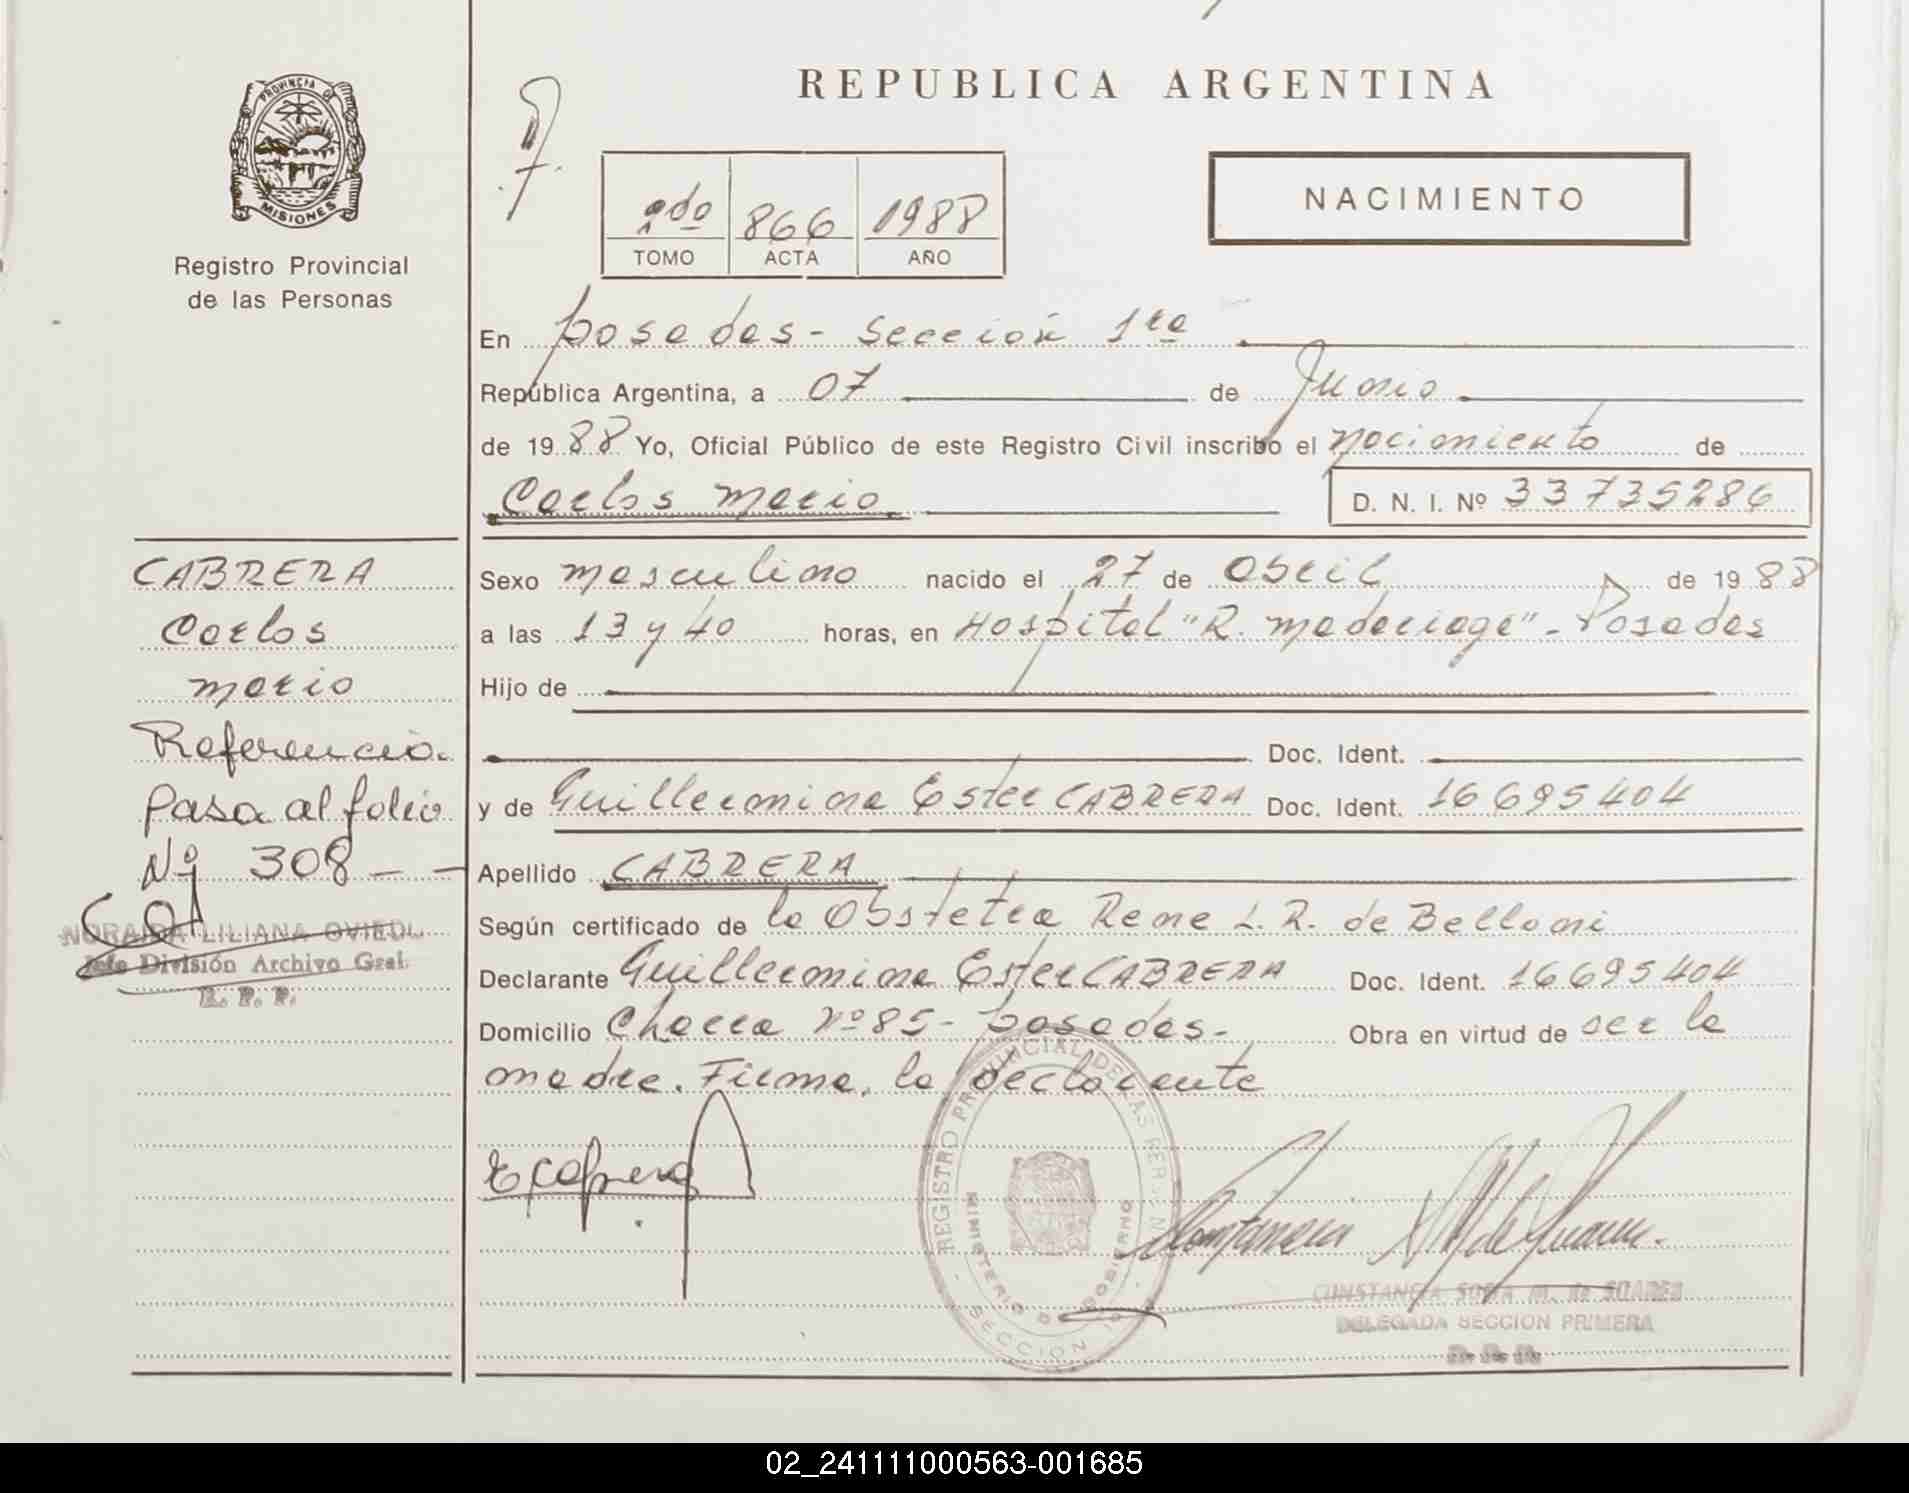 REPUBLICA ARGENTINA
PROVINCIA DE
MISIONES
Registro Provincial
de las Personas
2do 866 1988
TOMO ACTA AÑO
NACIMIENTO
En Posadas - Sección 1ra
República Argentina, a 07 de Junio
de 1988 Yo, Oficial Público de este Registro Civil inscribo el nacimiento de
Carlos Mario D. N. I. Nº 33735286
Sexo masculino nacido el 27 de Abril de 1988
a las 13 y 40 horas, en Hospital "R. Madariaga" - Posadas
Hijo de
Doc. Ident.
y de Guillermina Ester CABRERA Doc. Ident. 16695404
Apellido CABRERA
Según certificado de la Obstetra Rene L. R. de Belloni
Declarante Guillermina Ester CABRERA Doc. Ident. 16695404
Domicilio Chacra Nº 85 - Posadas - Obra en virtud de ser la
madre. Firma, la declarante
CABRERA
Carlos
Mario
Referencia
Pasa al folio
Nº 308 - -
NORAIDA LILIANA OVIEDO
Jefe División Archivo Gral.
R. P. P.
REGISTRO PROVINCIAL DE LAS PERSONAS
MINISTERIO DE GOBIERNO
SECCION 1a
CONSTANCIA SOFIA M. de SUARES
DELEGADA SECCION PRIMERA
R. P. P.
02_241111000563-001685